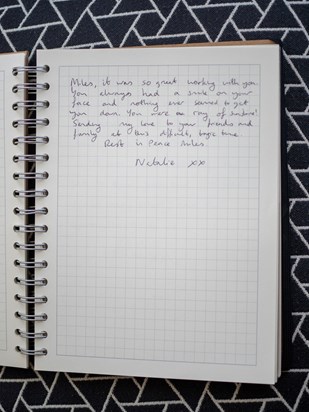 Miles, it was so great working with you.
You always had a smile on your
face and nothing ever seemed to get
you down. You were a ray of sunshine!
Sending my love to your friends and
family at this difficult, tragic time.
Rest in Peace Miles.
Natalie xx